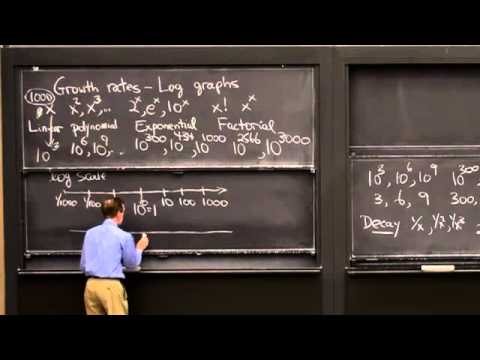 Growth rates – Log graphs
1000
x x², x³, ... 2ˣ, eˣ, 10ˣ x! xˣ
Linear polynomial Exponential Factorial
10³ 10⁶, 10⁹, .. 10³⁰⁰, 10⁴³⁴, 10¹⁰⁰⁰ 10²⁵⁶⁶, 10³⁰⁰⁰
log scale
1/1000 1/100 10⁰=1 10 100 1000
10³, 10⁶, 10⁹ 10³⁰⁰
3, 6, 9 300,
Decay 1/x, 1/x², 1/x³